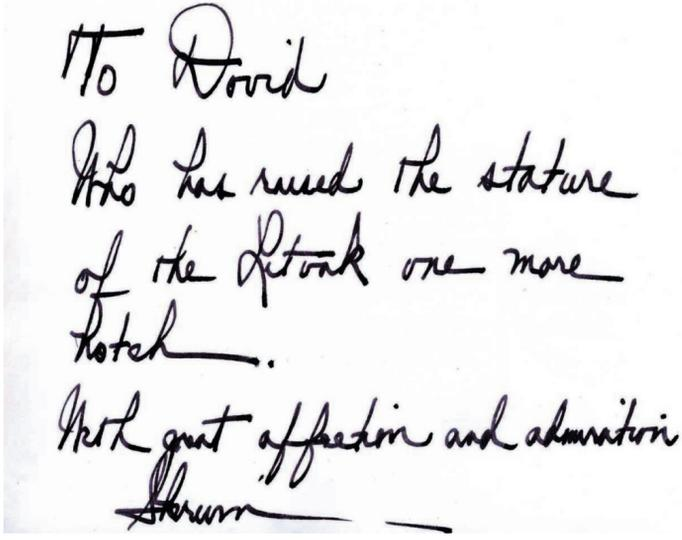 To Dovid
Who has raised the stature
of the Litvak one more
notch.
With great affection and admiration